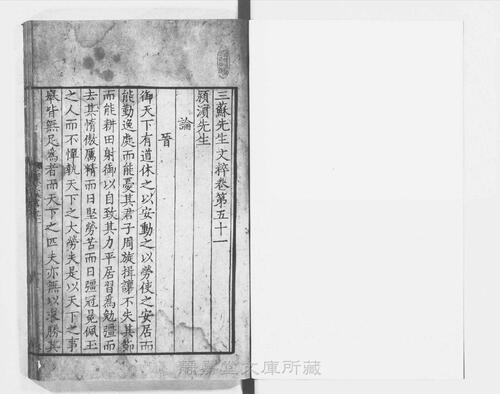 三蘇先生文粹卷第五十一
潁濱先生
論
晉
御天下有道休之以安動之以勞使之安居而
能勤逸處而能憂其君子周旋揖讓不失其節
而能耕田射御以自致其力平居習為勉彊而
去其惰傲厲精而日堅勞苦而日彊冠冕佩玉
之人而不憚執天下之大勞夫是以天下之事
舉皆無足為者而天下之匹夫亦無以求勝其
靜嘉堂文庫所藏